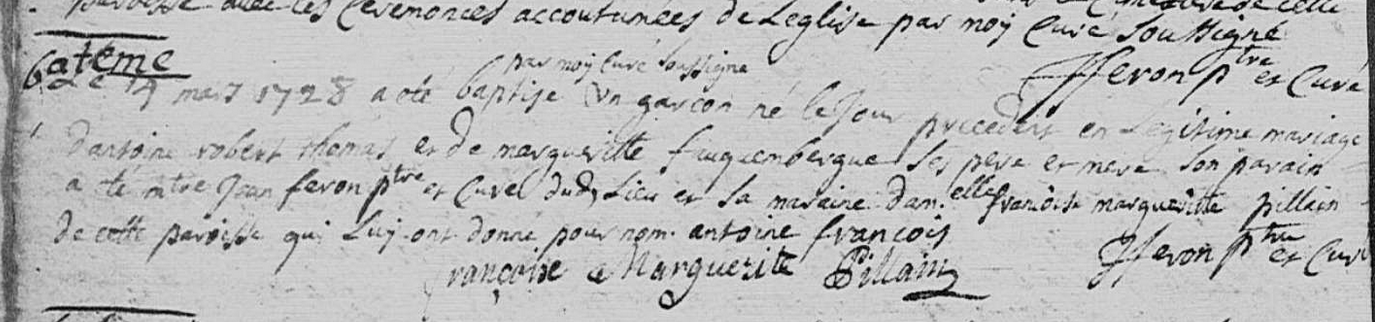 paroisse avec les Ceremonces accoutumées de Leglise par moy Curé Soussigné
JJferon ptre et Curé
batême
par moy Curé soussigné
Le 4 mars 1728 a eté baptise Un garcon né le Jour precedent en Legitime mariage
dantoine robert thomas et de margueritte fauquembergue Ses pere et mere Son parain
a eté mtre Jean feron ptre et Curé dud Lieu et Sa maraine dam.elle francoise marguerite pillain
de cette paroisse qui Luy ont donné pour nom antoine francois
françoise Marguerite Pillain
JJferon ptre et Curé